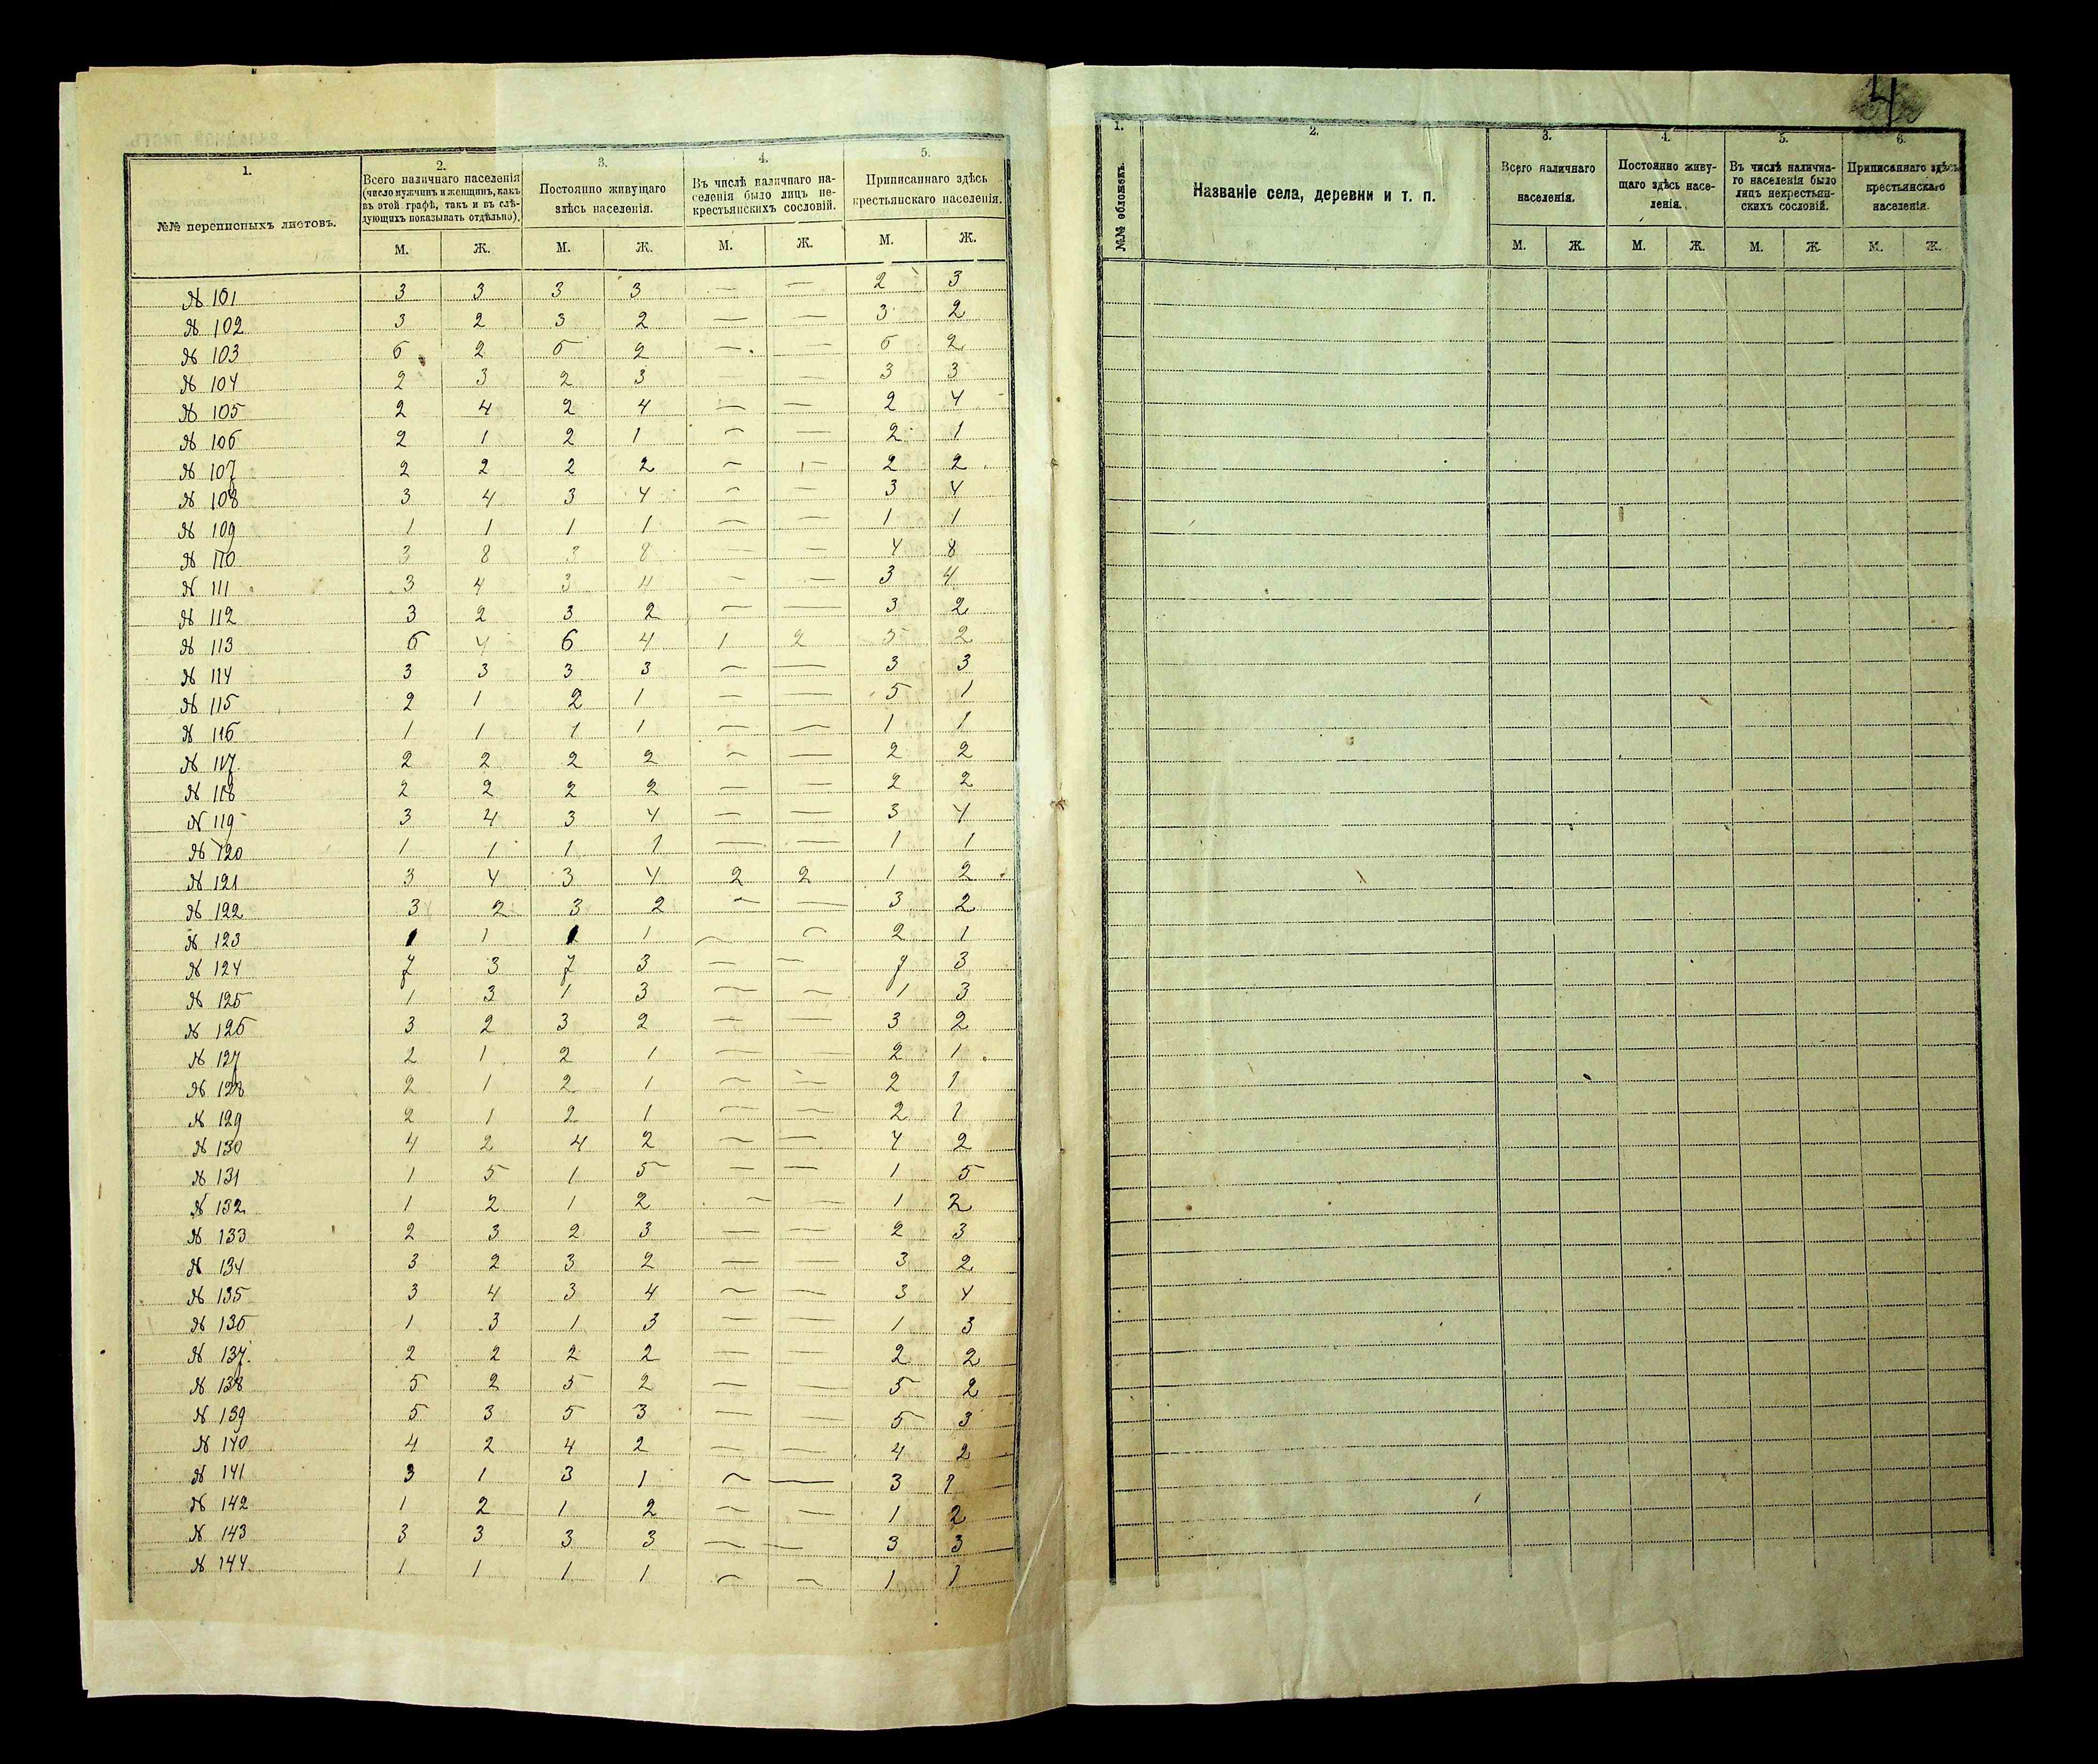 1. 2. 3. 4. 5.
№№ переписныхъ листовъ. Всего наличнаго населенія (число мужчинъ и женщинъ, какъ въ этой графѣ, такъ и въ слѣдующихъ показывать отдѣльно). Постоянно живущаго здѣсь населенія. Въ числѣ наличнаго населенія было лицъ некрестьянскихъ сословій. Приписаннаго здѣсь крестьянскаго населенія.
М. Ж. М. Ж. М. Ж. М. Ж.
№ 101 3 3 3 3 — — 2 3
№ 102 3 2 3 2 — — 3 2
№ 103 6 2 6 2 — — 6 2
№ 104 2 3 2 3 — — 3 3
№ 105 2 4 2 4 — — 2 4
№ 106 2 1 2 1 — — 2 1
№ 107 2 2 2 2 — — 2 2
№ 108 3 4 3 4 — — 3 4
№ 109 1 1 1 1 — — 1 1
№ 110 3 8 3 8 — — 4 8
№ 111 3 4 3 4 — — 3 4
№ 112 3 2 3 2 — — 3 2
№ 113 6 4 6 4 1 2 5 2
№ 114 3 3 3 3 — — 3 3
№ 115 2 1 2 1 — — 5 1
№ 116 1 1 1 1 — — 1 1
№ 117 2 2 2 2 — — 2 2
№ 118 2 2 2 2 — — 2 2
№ 119 3 4 3 4 — — 3 4
№ 120 1 1 1 1 — — 1 1
№ 121 3 4 3 4 2 2 1 2
№ 122 3 2 3 2 — — 3 2
№ 123 1 1 1 1 — — 2 1
№ 124 7 3 7 3 — — 7 3
№ 125 1 3 1 3 — — 1 3
№ 126 3 2 3 2 — — 3 2
№ 127 2 1 2 1 — — 2 1
№ 128 2 1 2 1 — — 2 1
№ 129 2 1 2 1 — — 2 1
№ 130 4 2 4 2 — — 4 2
№ 131 1 5 1 5 — — 1 5
№ 132 1 2 1 2 — — 1 2
№ 133 2 3 2 3 — — 2 3
№ 134 3 2 3 2 — — 3 2
№ 135 3 4 3 4 — — 3 4
№ 136 1 3 1 3 — — 1 3
№ 137 2 2 2 2 — — 2 2
№ 138 5 2 5 2 — — 5 2
№ 139 5 3 5 3 — — 5 3
№ 140 4 2 4 2 — — 4 2
№ 141 3 1 3 1 — — 3 1
№ 142 1 2 1 2 — — 1 2
№ 143 3 3 3 3 — — 3 3
№ 144 1 1 1 1 — — 1 1
4
1. 2. 3. 4. 5. 6.
№№ обложекъ. Названіе села, деревни и т. п. Всего наличнаго населенія. Постоянно живущаго здѣсь населенія. Въ числѣ наличнаго населенія было лицъ некрестьянскихъ сословій. Приписаннаго здѣсь крестьянскаго населенія.
М. Ж. М. Ж. М. Ж. М. Ж.